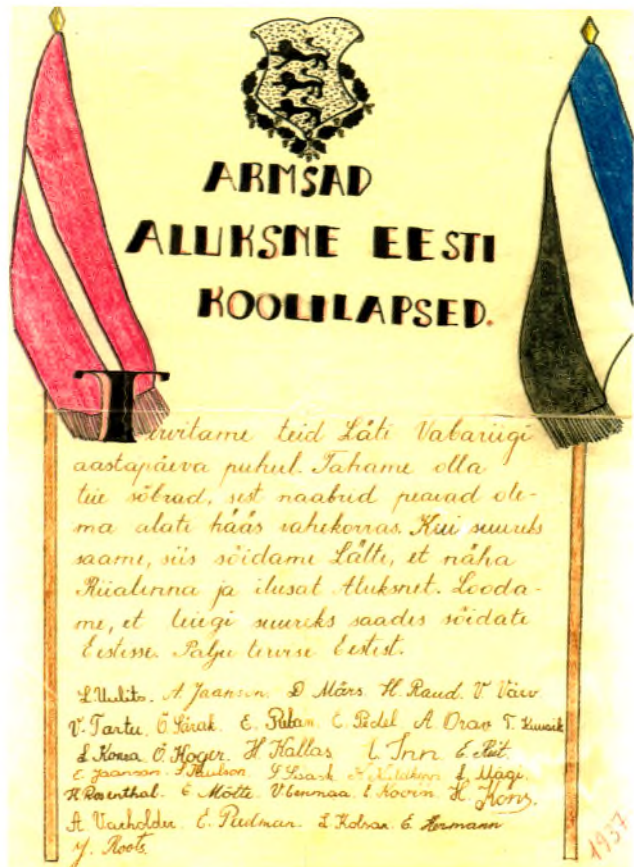 ARMSAD
ALUKSNE EESTI
KOOLILAPSED.
Tervitame teid Läti Vabariigi
aastapäeva puhul. Tahame olla
teie sõbrad, sest naabrid peavad ole-
ma alati hääs vahekorras. Kui suureks
saame, siis sõidame Lätti, et näha
Riialinna ja ilusat Aluksnet. Looda-
me, et teiegi suureks saades sõidate
Eestisse. Palju tervise Eestist.
A. Jaanson D. Märs. H. Raud. V. Väiv
V. Tartu. Ö. Särak E. C. Pedel A. Orav T.
L. Korea Ö. Koger. H. Kallas L. Inn E.
E. Jaanson. L. Mägi.
H. Rosenthal. E. Mötte V. Lennaa. E. Koorin H. Kons.
A. Vacholder. E. Piedman. L. Kolsar. E. Hermann
J. Roots.
1937